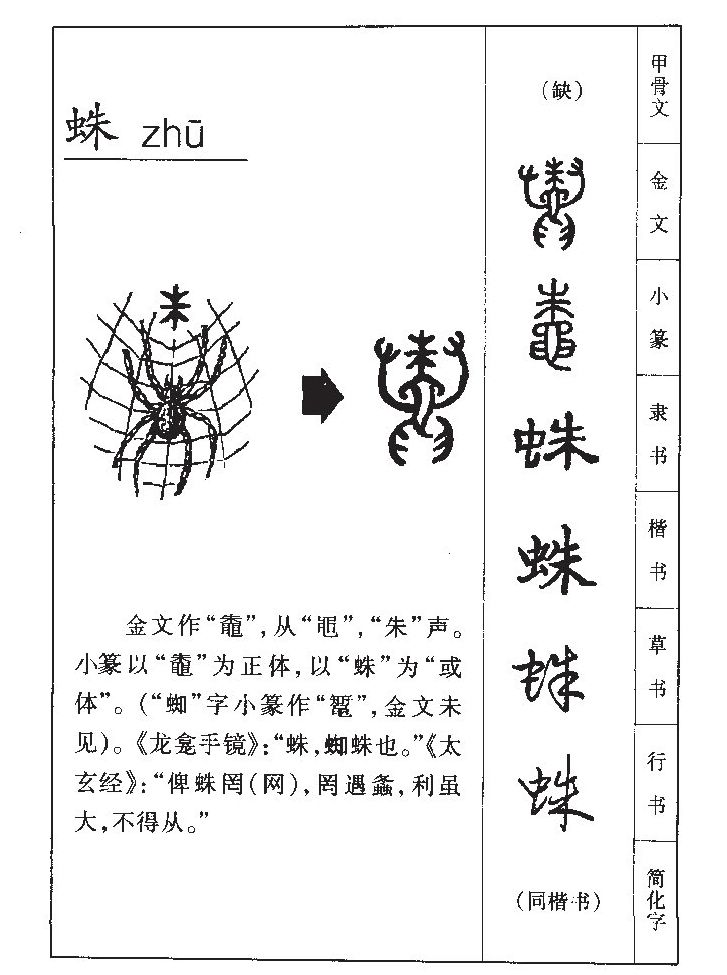 蛛 zhū
金文作“鼄”,从“黽”,“朱”声。
小篆以“鼄”为正体,以“蛛”为“或
体”。(“蜘”字小篆作“鼅”,金文未
见)。《龙龛手镜》:“蛛,蜘蛛也。”《太
玄经》:“俾蛛罔(网),罔遇,利虽
大,不得从。”
(缺)
甲骨文
金文
小篆
蛛
隶书
蛛
楷书
蛛
草书
蛛
行书
(同楷书)
简化字